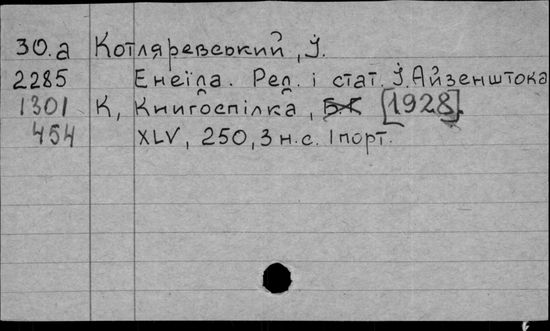 30.а Котляревський, І.
2285 Енеїда. Ред. і стат. І. Айзенштока
1301 К, Книгоспілка, [1928].
454 XLV, 250, 3 н.с. 1 порт.